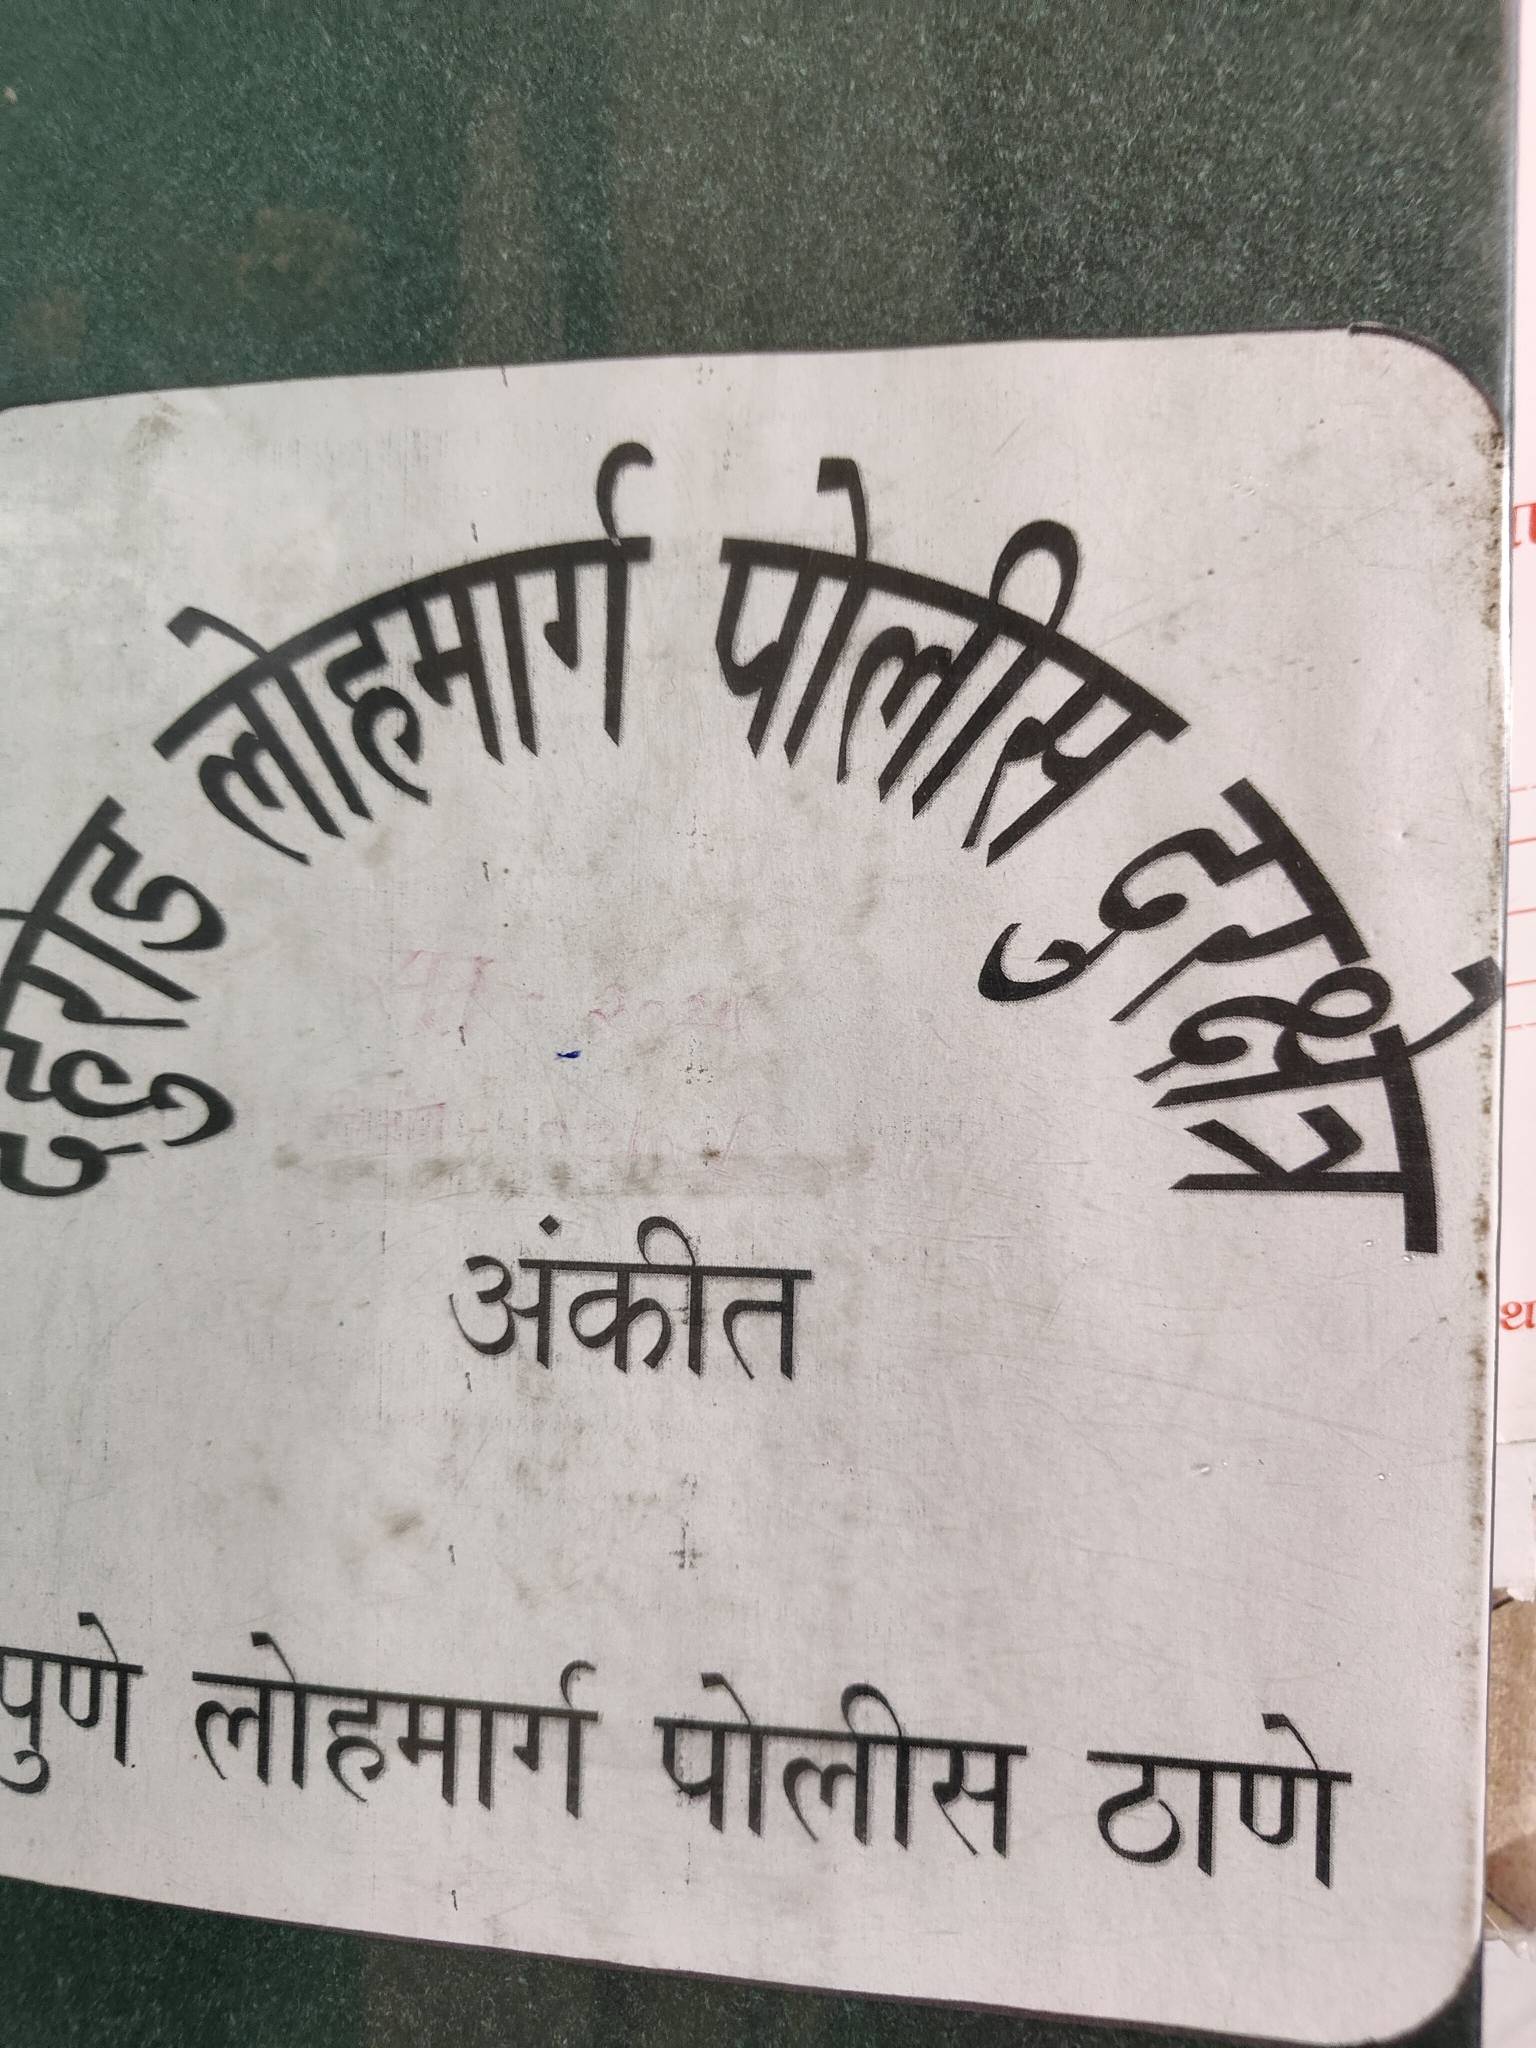 देहुरोड लोहमार्ग पोलीस दुरक्षेत्र
अंकीत
पुणे लोहमार्ग पोलीस ठाणे